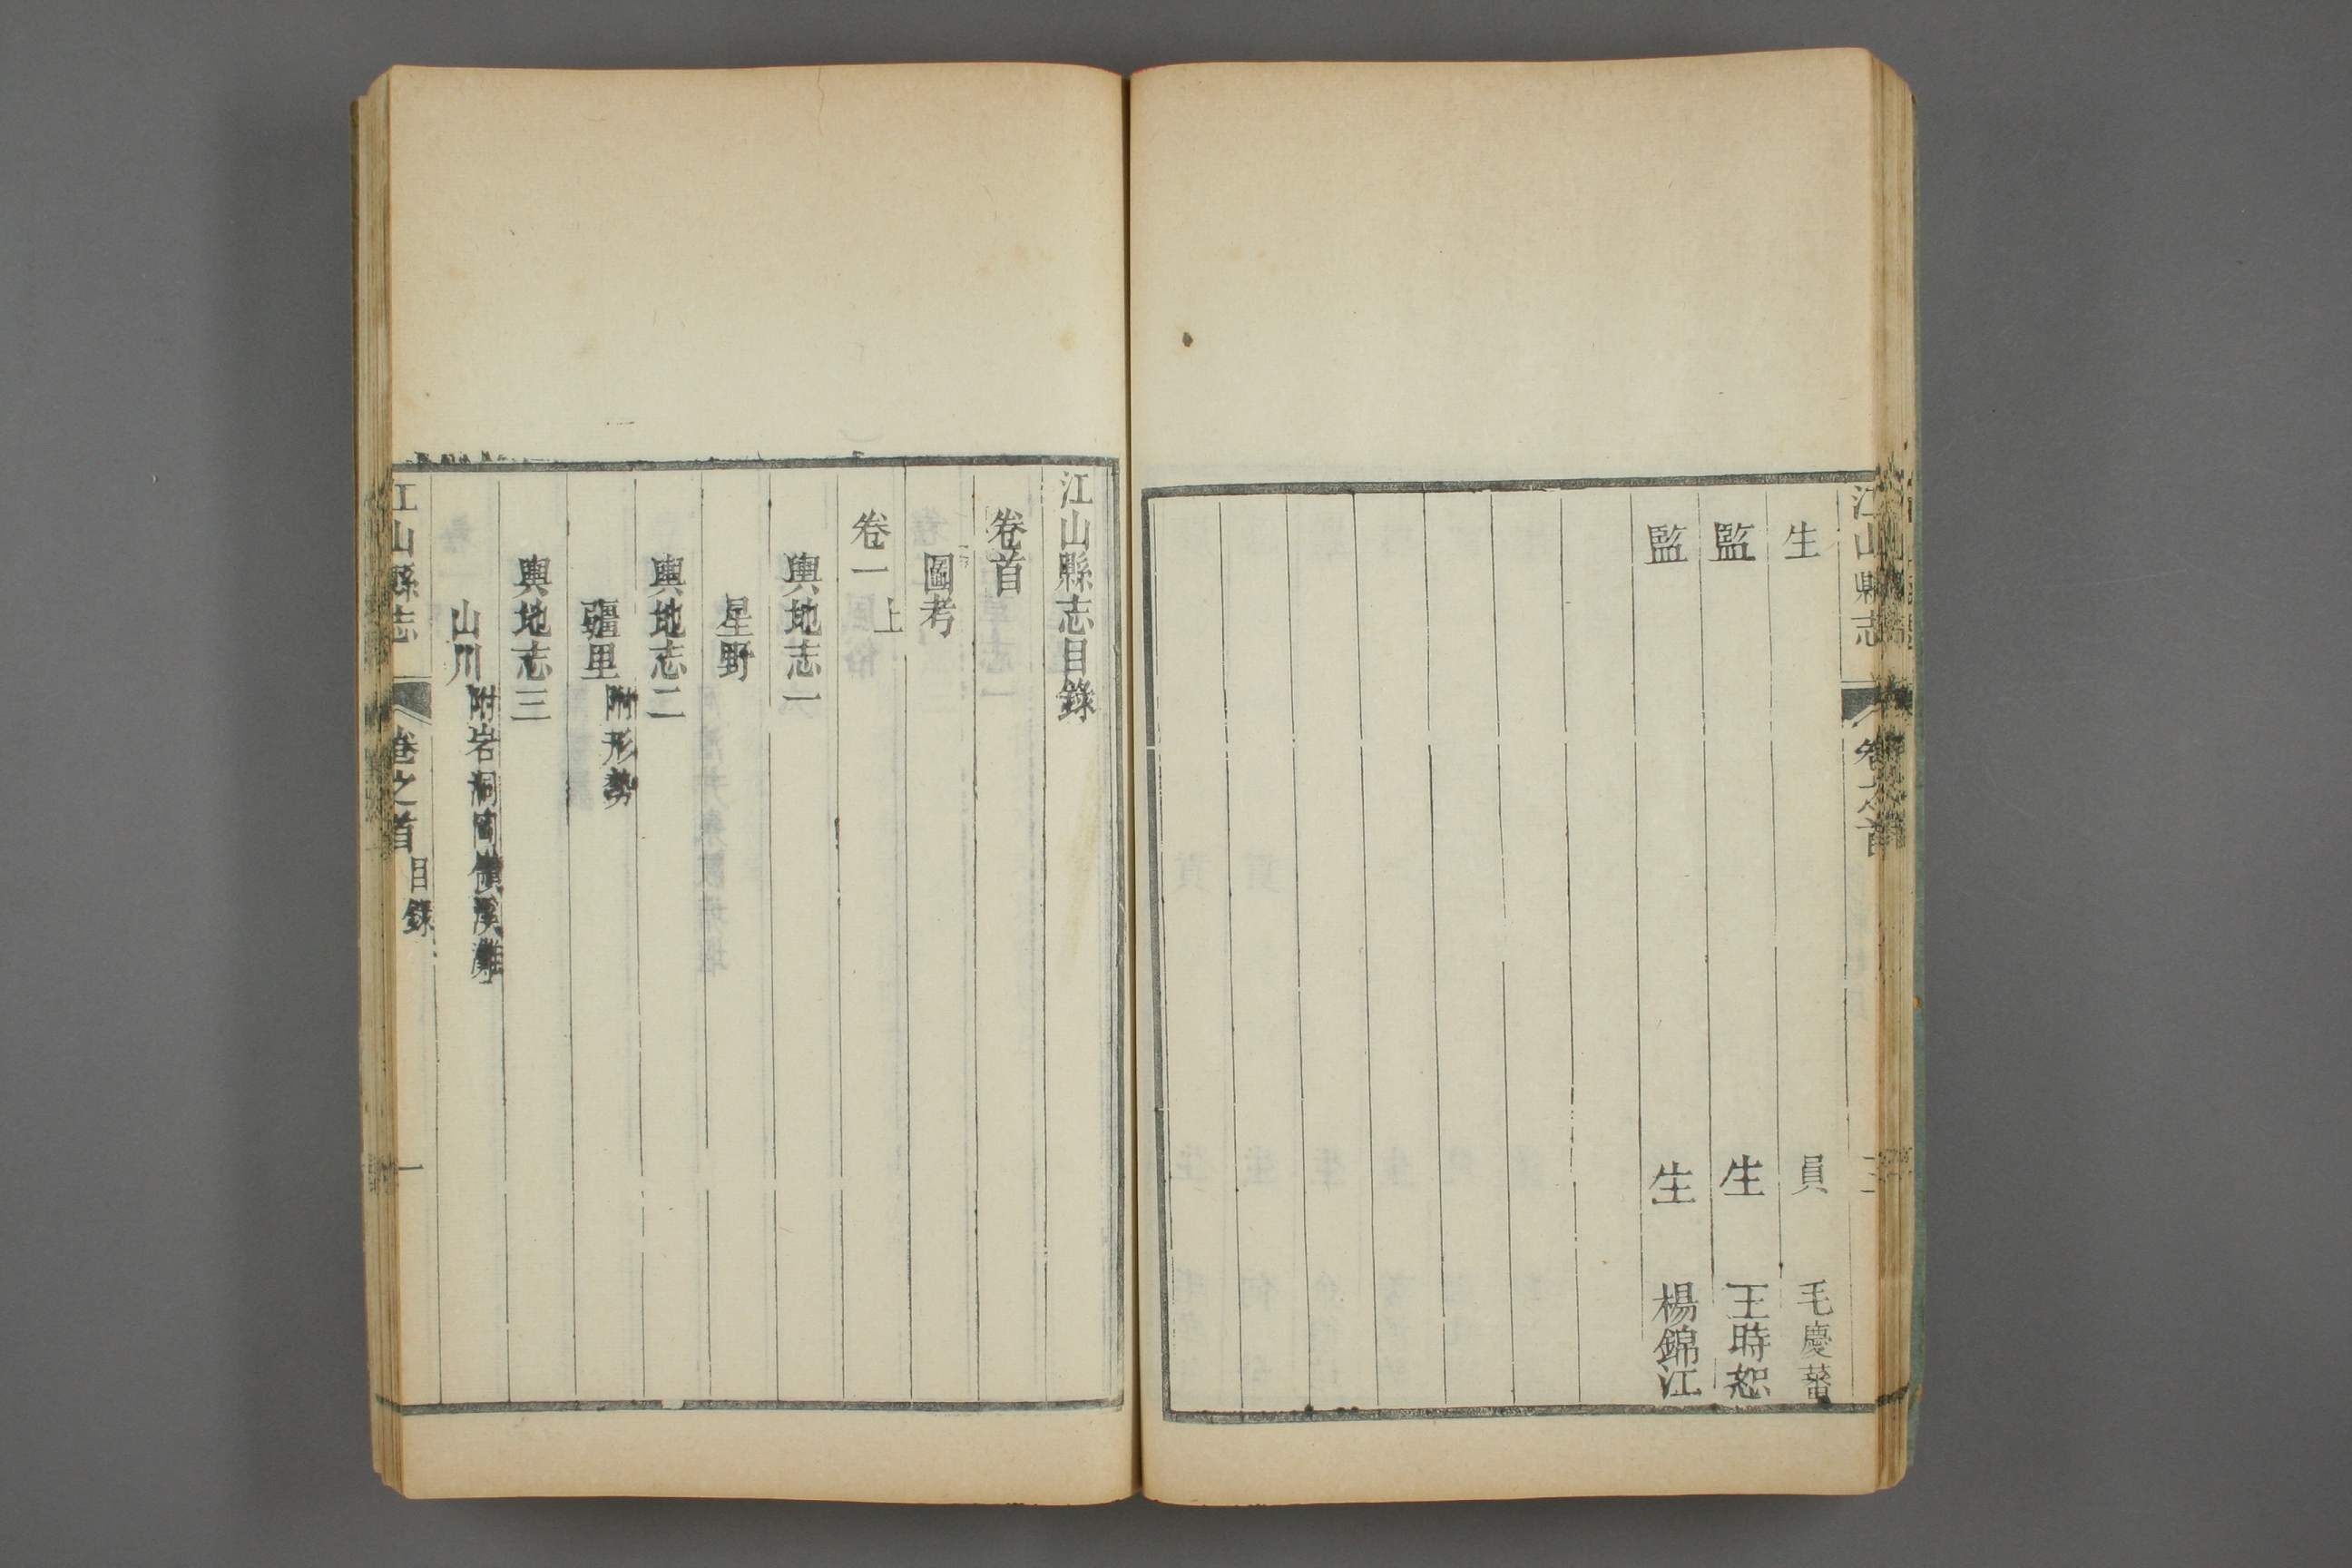 江山縣志 卷之首
生 員 毛慶蕃
監 生 王時恕
監 生 楊錦江
江山縣志目錄
卷首
圖考
卷一上
輿地志一
星野
輿地志二
疆里 附形勢
輿地志三
山川 附岩洞嶺溪灘
江山縣志 卷之首 目錄 一